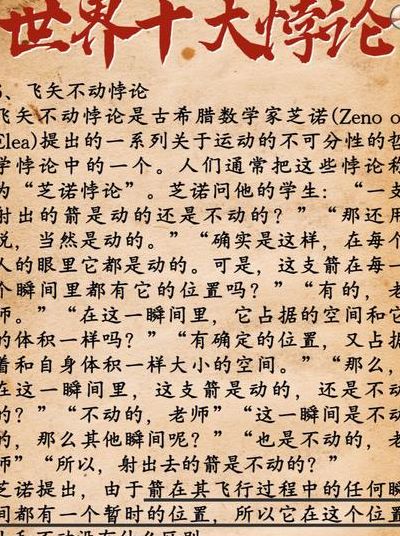 世界十大悖论
、飞矢不动悖论
飞矢不动悖论是古希腊数学家芝诺(Zeno o
Elea)提出的一系列关于运动的不可分性的哲
学悖论中的一个。人们通常把这些悖论称
为“芝诺悖论”。芝诺问他的学生：“一支
射出的箭是动的还是不动的？”“那还用
说，当然是动的。”“确实是这样，在每个
人的眼里它都是动的。可是，这支箭在每一
个瞬间里都有它的位置吗？”“有的，老
师。”“在这一瞬间里，它占据的空间和它
的体积一样吗？”“有确定的位置，又占据
着和自身体积一样大小的空间。”“那么，
在这一瞬间里，这支箭是动的，还是不动
的？”“不动的，老师”“这一瞬间是不动
的，那么其他瞬间呢？”“也是不动的，老
师”“所以，射出去的箭是不动的？”
芝诺提出，由于箭在其飞行过程中的任何瞬
间都有一个暂时的位置，所以它在这个位置
上和不动没有什么区别